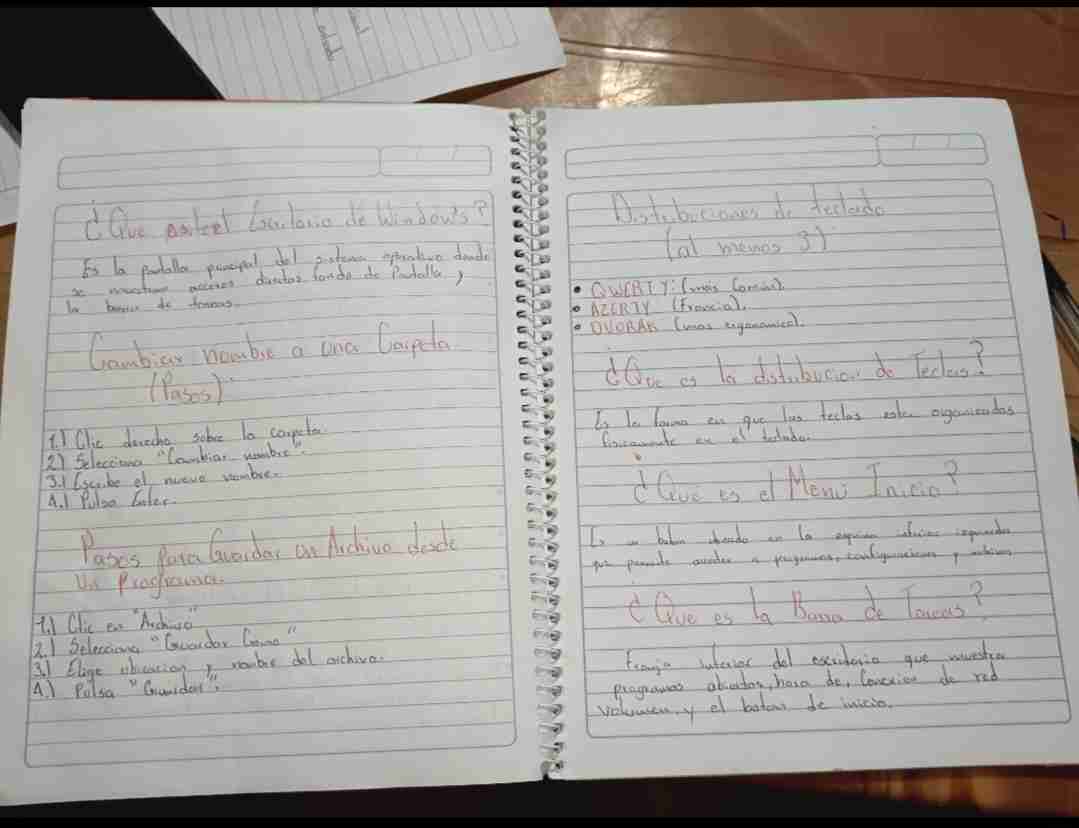 ¿Que es el Escritorio de Windows?
Es la pantalla principal del sistema operativo donde
se muestran accesos directos fondo de Pantalla,
la barra de tareas
Cambiar nombre a una Carpeta
(Pasos)
1.) Clic derecho sobre la carpeta
2) Selecciona "Cambiar nombre".
3.) Escribe el nuevo nombre.
4.) Pulsa Enter.
Pasos Para Guardar un Archivo desde
Un Programa.
1.) Clic en "Archivo"
2.) Selecciona "Guardar Como"
3.) Elige ubicacion y nombre del archivo.
4.) Pulsa "Guardar".
Distribuciones de teclado
(al menos 3)
• QWERTY: (mas Común).
• AZERTY (Francia).
• DVORAK (mas ergonomico).
¿Que es la distribucion de Teclas?
Es la forma en que las teclas estan organizadas
fisicamente en el teclado.
¿Que es el Menú Inicio?
Es un boton ubicado en la esquina inferior izquierda
que permite acceder a programas, configuraciones y archivos
¿Que es la Barra de Tareas?
Franja inferior del escritorio que muestra
programas abiertos, hora de, Conexion de red
volumen, y el boton de inicio.